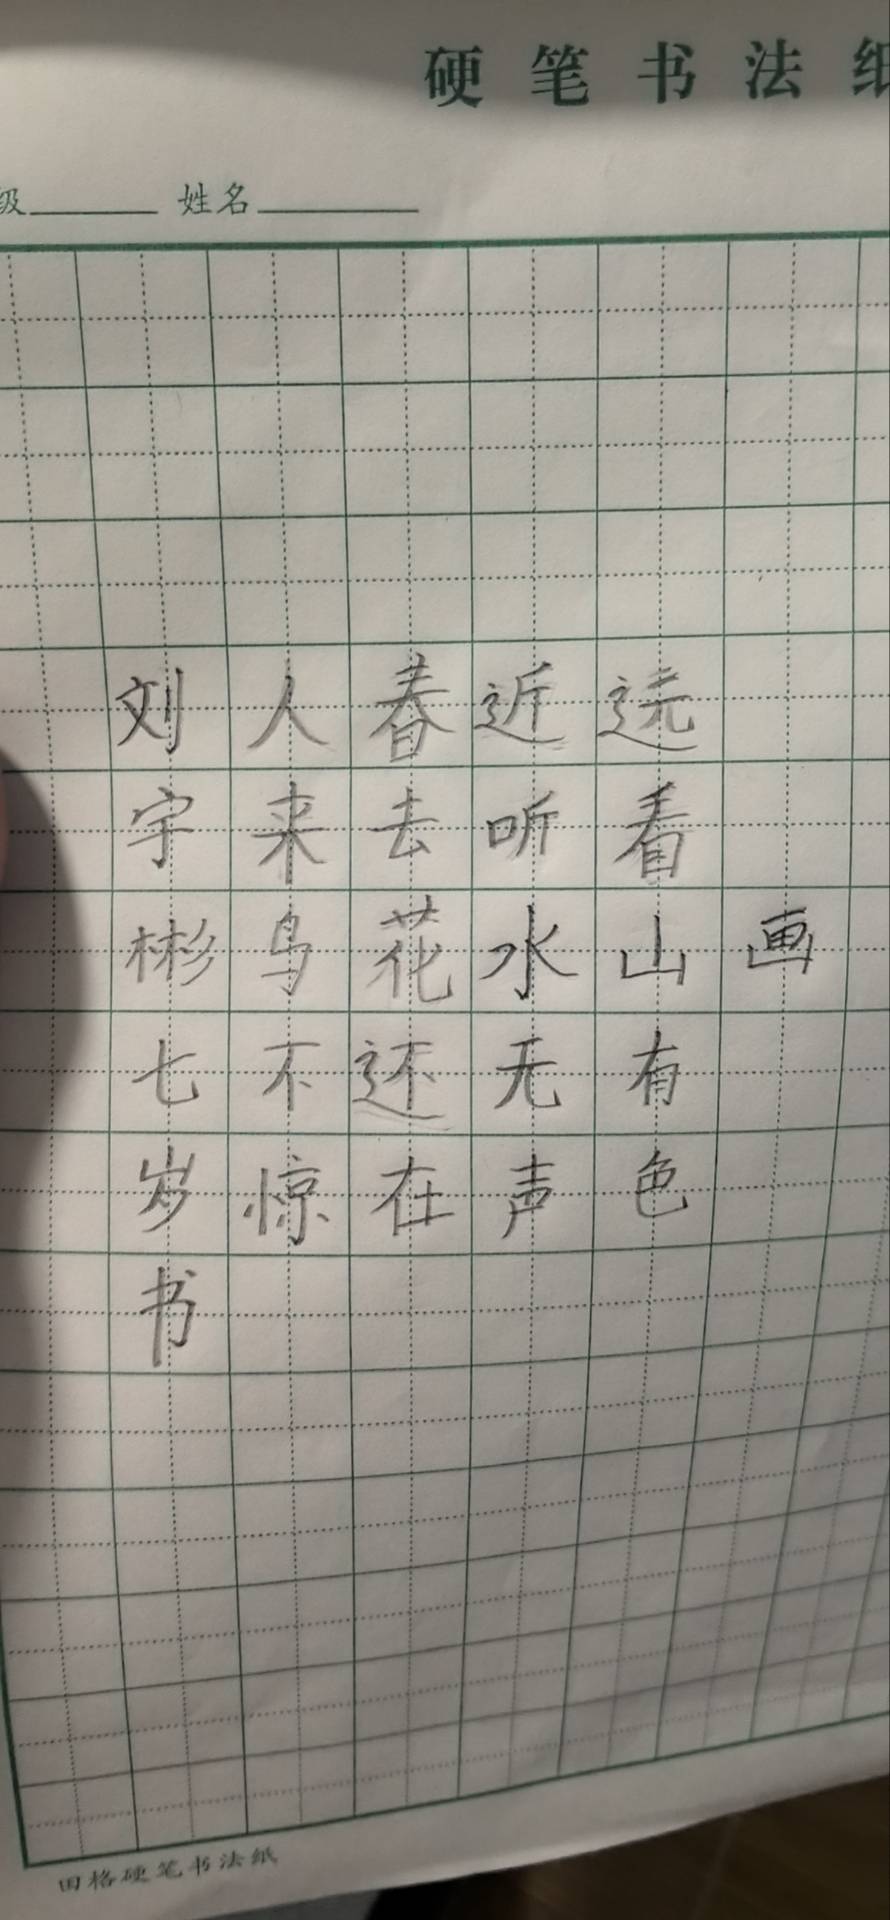 硬笔书法纸
级 姓名
画
远看山有色
近听水无声
春去花还在
人来鸟不惊
刘宇彬七岁书
田格硬笔书法纸